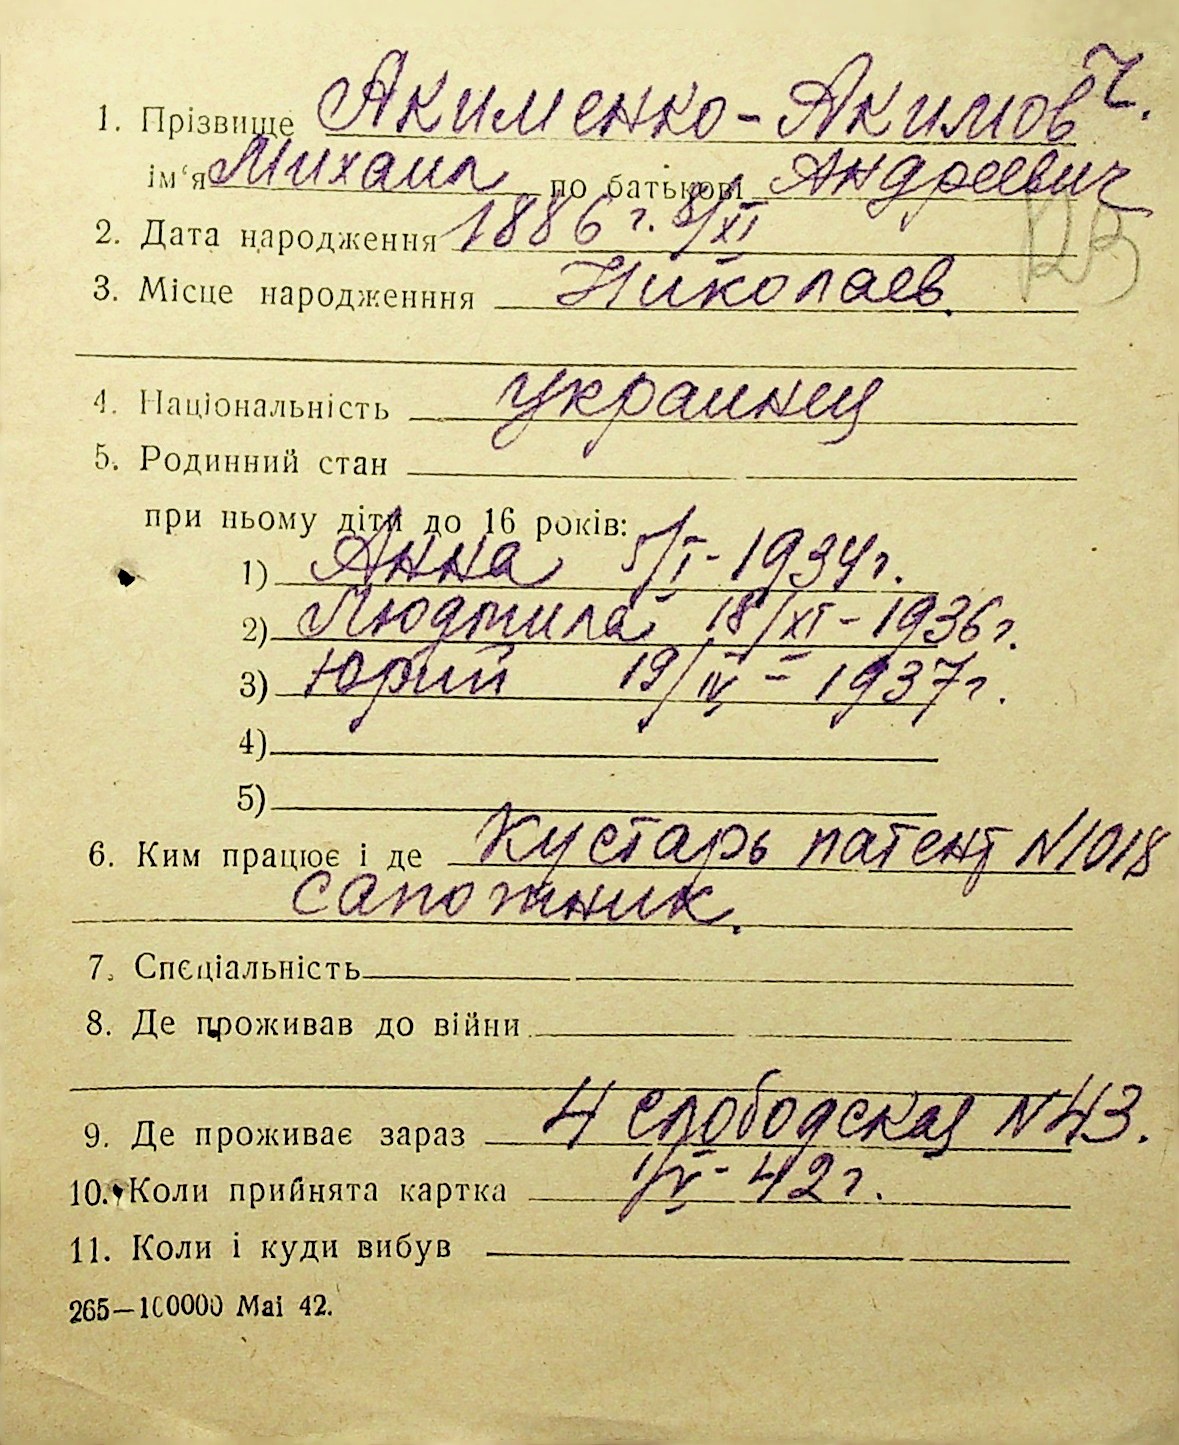 1. Прізвище Акименко-Акимов
ім‘я Михаил по батькові Андреевич
2. Дата народження 1886 г. 8/XI
3. Місце народженння Николаев.
4. Національність украинец
5. Родинний стан
при ньому діти до 16 років:
1) Анна 5/I - 1934 г.
2) Людмила 18/XI - 1936 г.
3) Юрий 19/IV - 1937 г.
4)
5)
6. Ким працює і де Кустарь патент N 1018
сапожник.
7. Спєціальність
8. Де проживав до війни
9. Де проживає зараз 4 слободская N 43.
10. Коли прийнята картка 1/V - 42 г.
11. Коли і куди вибув
265—100000 Маі 42.